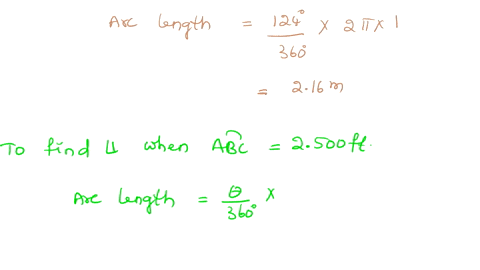 Arc length = 124°/360° × 2π × 1
= 2.16 m
To find ∠ when ABC = 2.500 ft.
Arc length = θ/360° ×